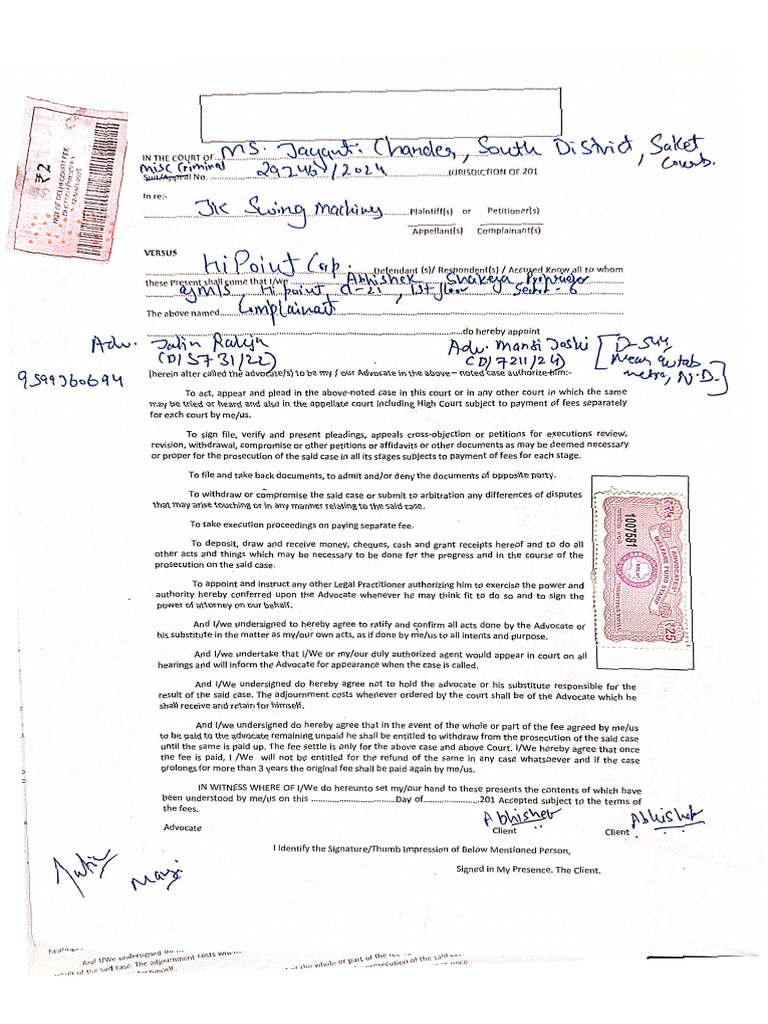 IN THE COURT OF MS. Jayanti Chander, South District, Saket Courts.
Misc Criminal
Suit/Appeal No. /2024 JURISDICTION OF 201
In re:-
JK Swing Machines Plaintiff(s) or Petitioner(s)
Appellant(s) Complainant(s)
VERSUS
Hi Point Corp. Defendant (s)/ Respondent(s) / Accused Know all to whom
these Present shall some that I/We Abhishek Shakya Proprietor
of M/s Hi point, 1st floor Sector-6
The above named Complainant
do hereby appoint
Adv. Jatin Raleja Adv. Mansi Joshi [D-544
(D/5731/22) (D/7211/24) Near Qutab
9599360694 metro, N.D.]
(herein alter called the advocate/s) to be my / our Advocate in the above – noted case authorize him:-
To act, appear and plead in the above-noted case in this court or in any other court in which the same
may be tried or heard and also in the appellate court including High Court subject to payment of fees separately
for each court by me/us.
To sign file, verify and present pleadings, appeals cross-objection or petitions for executions review,
revision, withdrawal, compromise or other petitions or affidavits or other documents as may be deemed necessary
or proper for the prosecution of the said case in all its stages subjects to payment of fees for each stage.
To file and take back documents, to admit and/or deny the documents of opposite party.
To withdraw or compromise the said case or submit to arbitration any differences of disputes
that may arise touching or in any manner relating to the said case.
To take execution proceedings on paying separate fee.
To deposit, draw and receive money, cheques, cash and grant receipts hereof and to do all
other acts and things which may be necessary to be done for the progress and in the course of the
prosecution on the said case.
To appoint and instruct any other Legal Practitioner authorizing him to exercise the power and
authority hereby conferred upon the Advocate whenever he may think fit to do so and to sign the
power of attorney on our behalf.
And I/we undersigned to hereby agree to ratify and confirm all acts done by the Advocate or
his substitute in the matter as my/our own acts, as if done by me/us to all intents and purpose.
And I/we undertake that I/We or my/our duly authorized agent would appear in court on all
hearings and will inform the Advocate for appearance when the case is called.
And I/We undersigned do hereby agree not to hold the advocate or his substitute responsible for the
result of the said case. The adjournment costs whenever ordered by the court shall be of the Advocate which he
shall receive and retain for himself.
And I/we undersigned do hereby agree that in the event of the whole or part of the fee agreed by me/us
to be paid to the advocate remaining unpaid he shall be entitled to withdraw from the prosecution of the said case
until the same is paid up. The fee settle is only for the above case and above Court. I/We hereby agree that once
the fee is paid, I /We will not be entitled for the refund of the same in any case whatsoever and if the case
prolongs for more than 3 years the original fee shall be paid again by me/us.
IN WITNESS WHERE OF I/We do hereunto set my/our hand to these presents the contents of which have
been understood by me/us on this ........................Day of........................201 Accepted subject to the terms of
the fees.
Abhishek Abhishek
Advocate Client Client
I Identify the Signature/Thumb Impression of Below Mentioned Person,
Signed in My Presence. The Client.
Jatin
Mansi
₹2
₹25
1007581
ADVOCATES'
WELFARE FUND STAMP
₹25
And I/We undersigned do
result of the said case. The adjournment costs when
the whole or part of the fee
prosecution of the said case